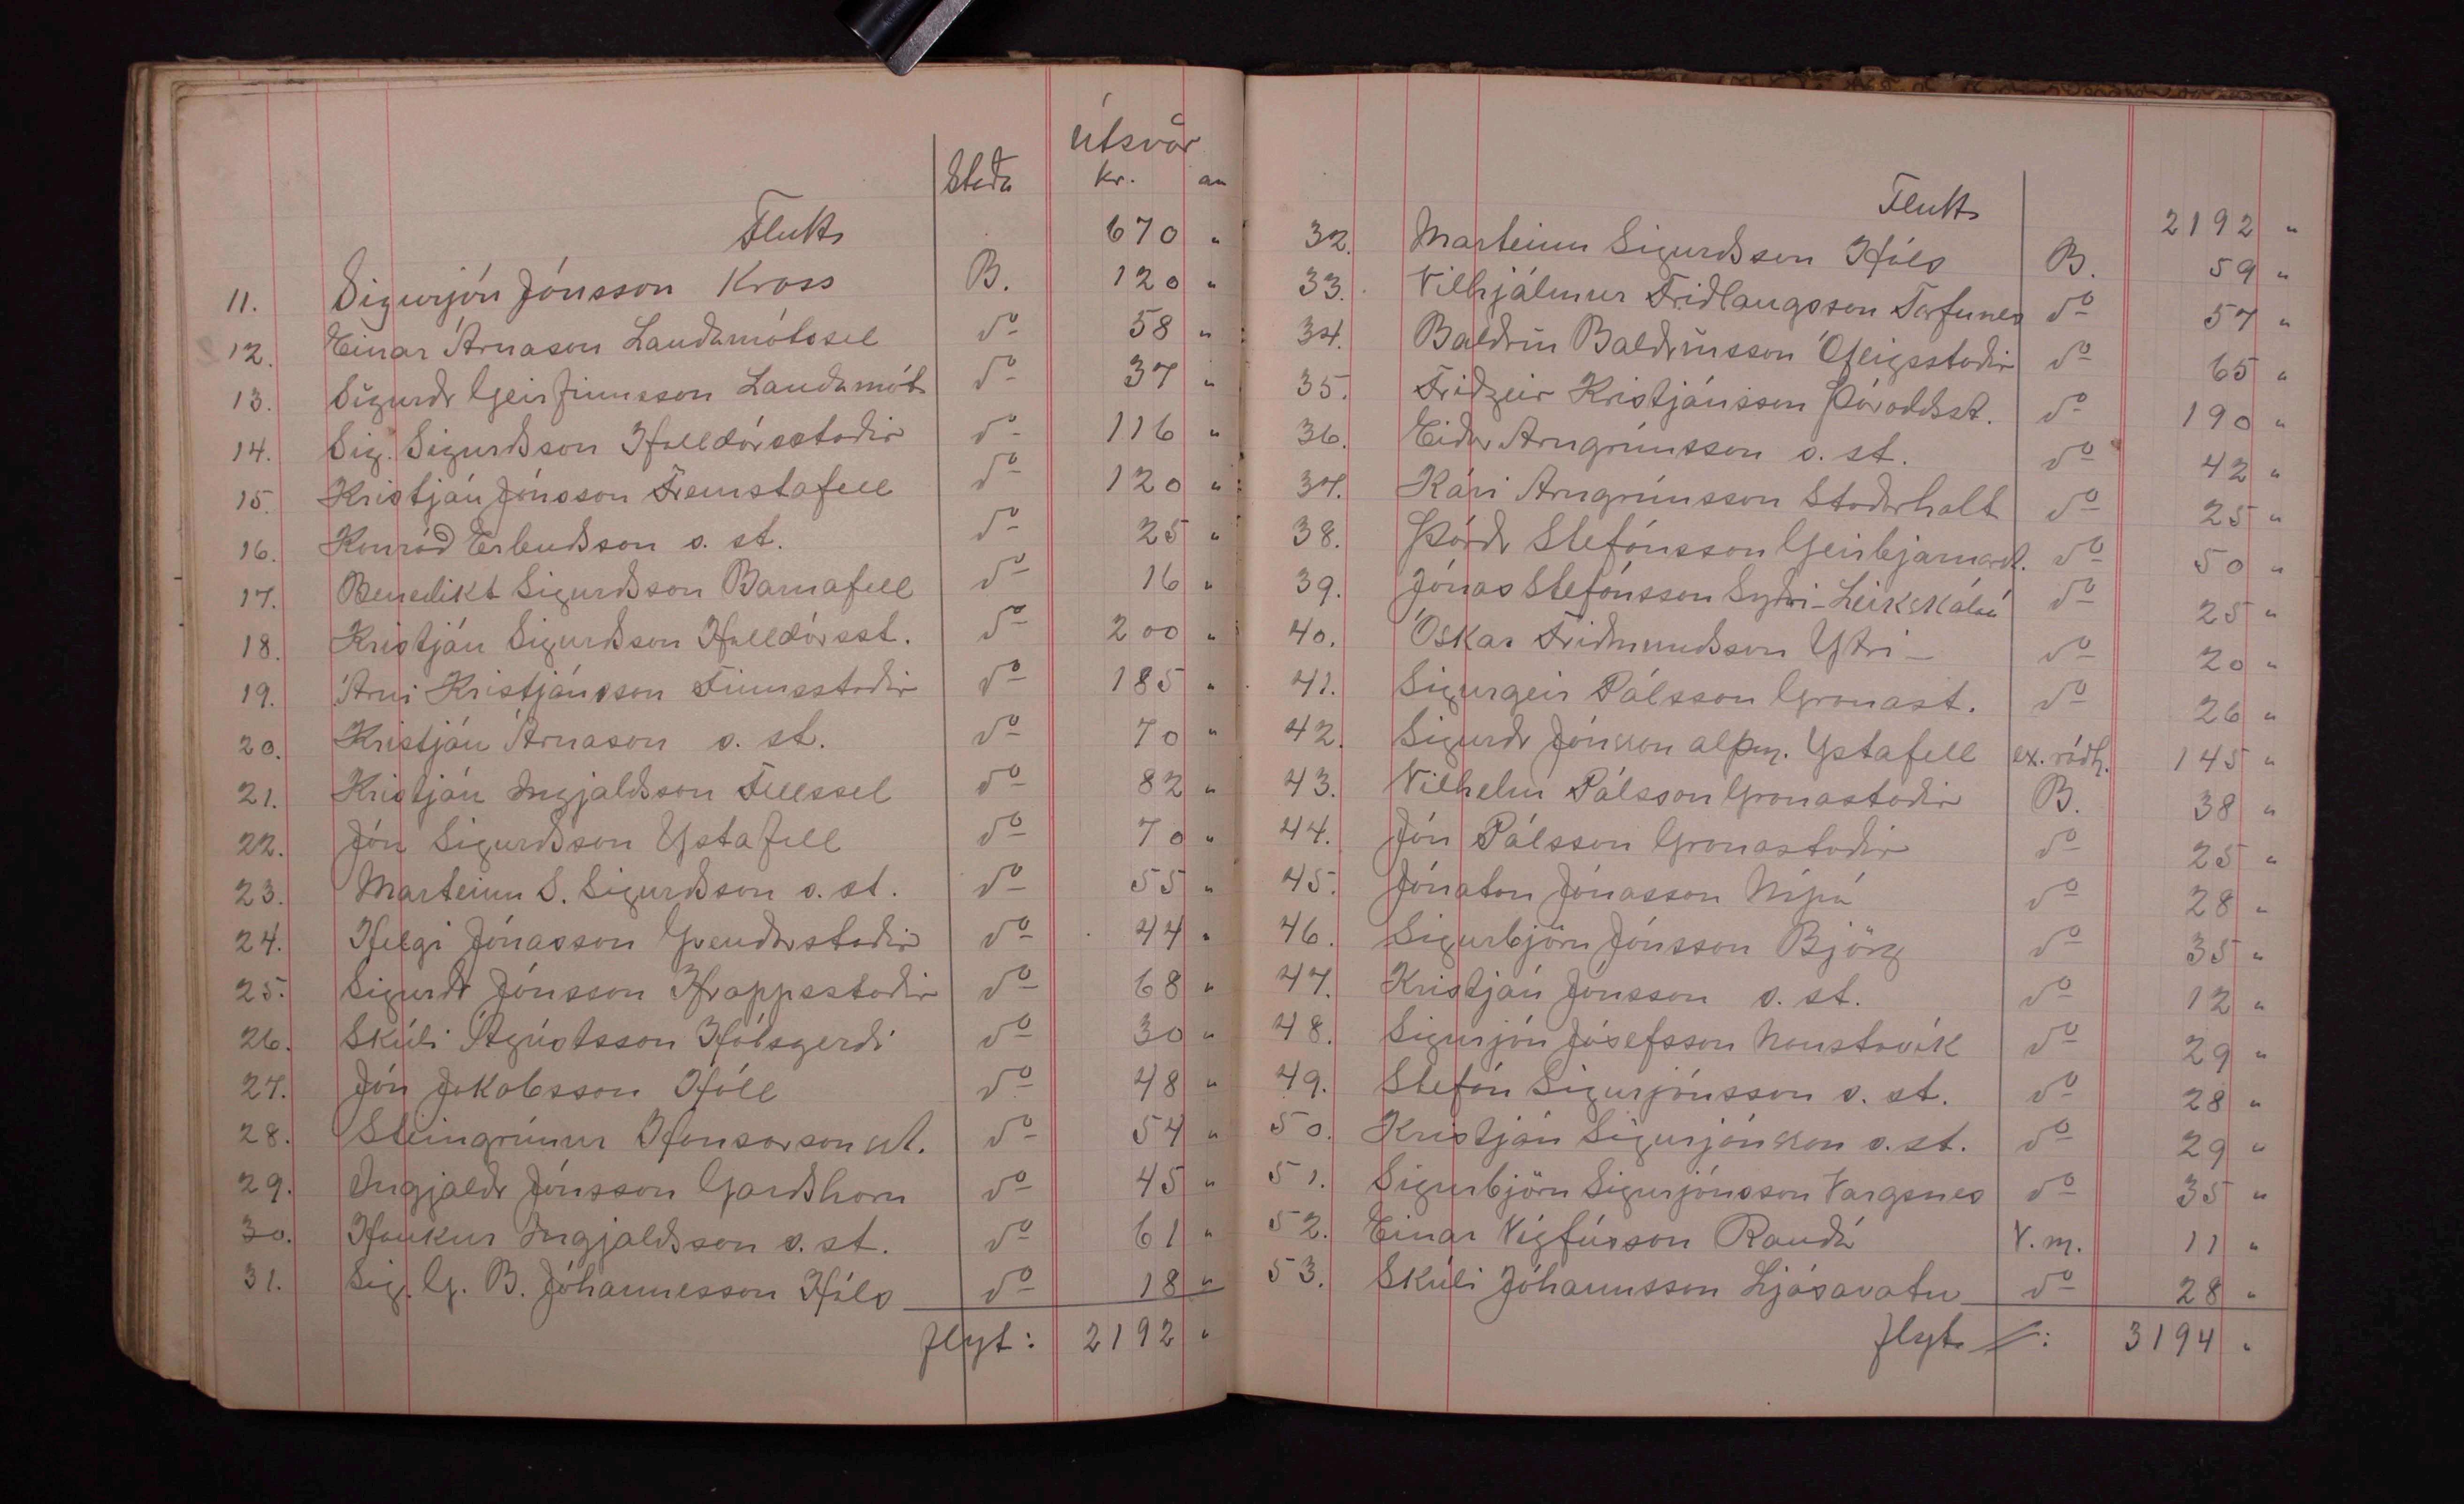 útsvör
Staða kr. au
Flutt 670 "
11. Sigurjón Jónsson Kross B. 120 "
12. Einar Árnason Landamótssel do 58 "
13. Sigurðr Geirfinnsson Landamót do 37 "
14. Sig. Sigurðsson Halldórsstaðir do 116 "
15. Kristján Jónsson Fremstafell do 120 "
16. Konráð Erlendsson s. st. do 25 "
17. Benedikt Sigurðsson Barnafell do 16 "
18. Kristján Sigurðsson Halldórsst. do 200 "
19. Árni Kristjánsson Finnsstaðir do 185 "
20. Kristján Árnason s. st. do 70 "
21. Kristján Ingjaldsson Fellssel do 82 "
22. Jón Sigurðsson Ystafell do 70 "
23. Marteinn S. Sigurðsson s. st. do 55 "
24. Helgi Jónasson Gvendarstaðir do 44 "
25. Sigurðr Jónsson Hrappsstaðir do 68 "
26. Skúli Ágústsson Hólsgerði do 30 "
27. Jón Jakobsson Hóll do 48 "
28. Steingrímur Hansarson st. do 54 "
29. Ingjaldr Jónsson Garðshorn do 45 "
30. Haukur Ingjaldsson s. st. do 61 "
31. Sig. G. B. Jóhannesson Háls do 18 "
flyt: 2192 "
Flutt 2192 "
32. Marteinn Sigurðsson Háls B. 59 "
33. Vilhjálmur Friðlaugsson Torfunes do 57 "
34. Baldvin Baldvinsson Ófeigsstaðir do 65 "
35. Friðgeir Kristjánsson Þóroddsst. do 190 "
36. Eiðr Arngrímsson s. st. do 42 "
37. Kári Arngrímsson Staðarholt do 25 "
38. Þórðr Stefánsson Geirbjarnarst. do 50 "
39. Jónas Stefánsson Syðri-Leikskálaá do 25 "
40. Óskar Friðmundsson Ytri — do 20 "
41. Sigurgeir Pálsson Granast. do 26 "
42. Sigurðr Jónsson alþm. Ystafell ex. ráðh. 145 "
43. Vilhelm Pálsson Granastaðir B. 38 "
44. Jón Pálsson Granastaðir do 25 "
45. Jónatan Jónasson Nípá do 28 "
46. Sigurbjörn Jónsson Björg do 35 "
47. Kristján Jónsson s. st. do 12 "
48. Sigurjón Jósefsson Naustavík do 29 "
49. Stefán Sigurjónsson s. st. do 28 "
50. Kristján Sigurjónsson s. st. do 29 "
51. Sigurbjörn Sigurjónsson Vargsnes do 35 "
52. Einar Vigfússon Rauðá V. m. 11 "
53. Skúli Jóhannsson Ljósavatn do 28 "
flyt: 3194 "